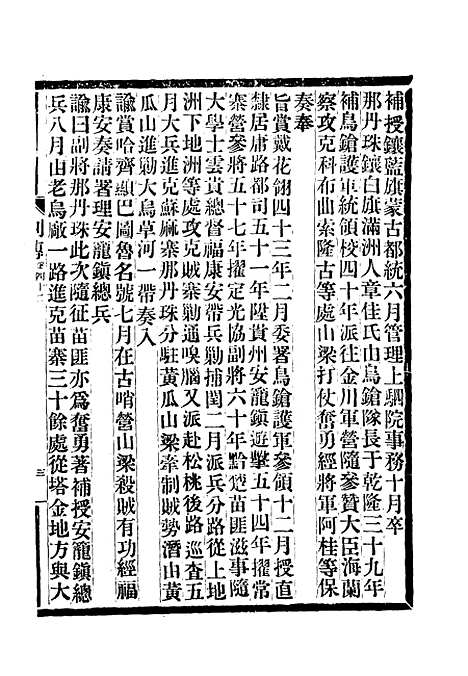 補授鑲藍旗蒙古都統六月管理上駟院事務十月卒
那丹珠鑲白旗滿洲人章佳氏由鳥鎗隊長于乾隆三十九年
補鳥鎗護軍統領校四十年派往金川軍營隨參贊大臣海蘭
察攻克科布曲索隆古等處山梁打仗奮勇經將軍阿桂等保
奏奉
旨賞戴花翎四十三年二月委署鳥鎗護軍參領十二月授直
隸居庸路都司五十一年陞貴州安龍鎮遊擊五十四年擢常
寨營參將五十七年擢定光協副將六十年黔楚苗匪滋事隨
大學士雲貴總督福康安帶兵勦捕閏二月派兵分路從上地
洲下地洲等處攻克賊寨勦通嗅腦又派赴松桃後路巡查五
月大兵進克蘇麻寨那丹珠分駐黃瓜山梁牽制賊勢潛由黃
瓜山進勦大烏草河一帶奏入
諭賞哈齊顯巴圖魯名號七月在古哨營山梁殺賊有功經福
康安奏請署理安龍鎮總兵
諭曰副將那丹珠此次隨征苗匪亦為奮勇著補授安龍鎮總
兵八月由老烏廠一路進克苗寨三十餘處從塔金地方與大
列傳
三